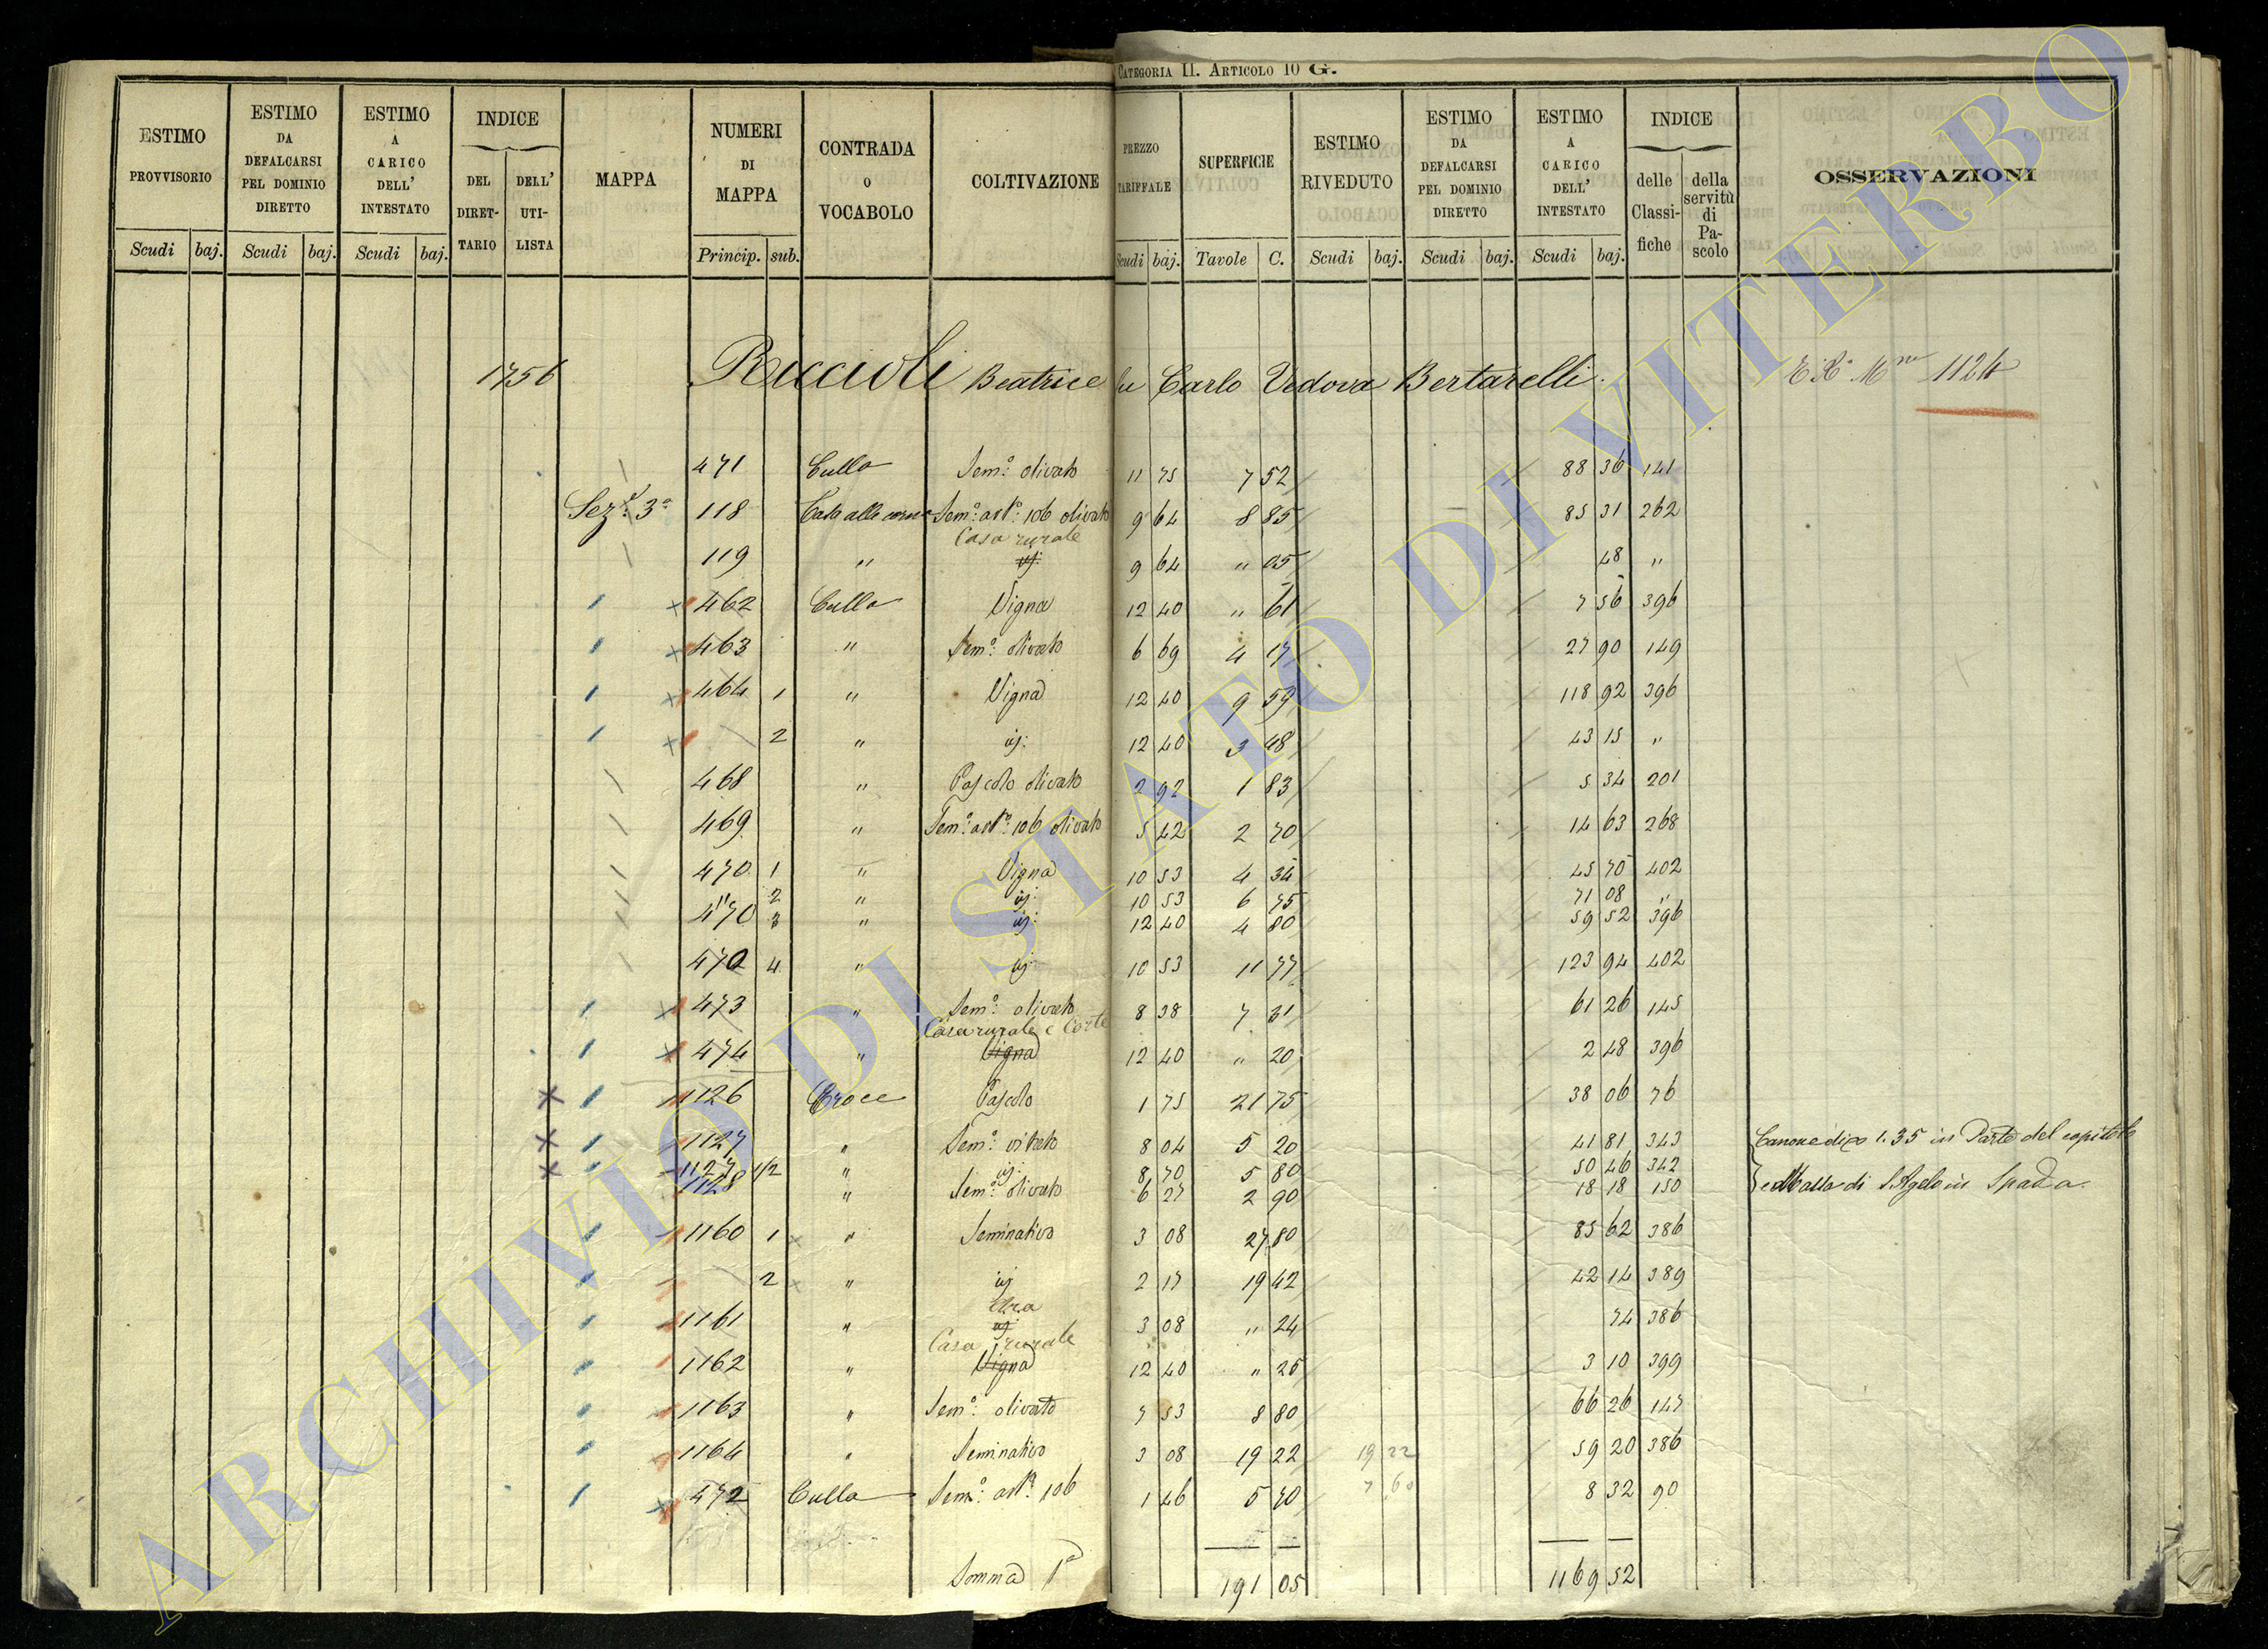 CATEGORIA II. ARTICOLO 10 G.
ESTIMO PROVVISORIO Scudi baj. ESTIMO DA DEFALCARSI PEL DOMINIO DIRETTO Scudi baj. ESTIMO A CARICO DELL' INTESTATO Scudi baj. INDICE DEL DIRETTARIO DELL' UTILISTA MAPPA NUMERI DI MAPPA Princip. sub. CONTRADA O VOCABOLO COLTIVAZIONE PREZZO TARIFFALE Scudi baj. SUPERFICIE Tavole C. ESTIMO RIVEDUTO Scudi baj. ESTIMO DA DEFALCARSI PEL DOMINIO DIRETTO Scudi baj. ESTIMO A CARICO DELL' INTESTATO Scudi baj. INDICE delle Classifiche della servitù di Pascolo OSSERVAZIONI
1756 Ruccioli Beatrice fu Carlo Vedova Bertarelli. 1124
471 Culla Sem.° olivato 11 75 7 52 88 36 141
Sez.e 3a 118 Sem.° art.° 106 olivato 9 64 8 85 85 31 262
Casa rurale
119 " id: 9 64 " 05 48 "
462 Culla Vigna 12 40 " 61 7 56 396
463 " Sem.° olivato 6 69 4 17 27 90 149
464 1 " Vigna 12 40 9 59 118 92 396
2 " id: 12 40 3 48 43 15 "
468 " Pascolo olivato 2 92 1 83 5 34 201
469 " Sem.° art.° 106 olivato 5 42 2 70 14 63 268
470 1 " Vigna 10 53 4 34 45 70 402
" 2 " id: 10 53 6 75 71 08 "
470 3 " id: 12 40 4 80 59 52 396
470 4 " id: 10 53 11 77 123 94 402
473 " Sem.° olivato 8 38 7 31 61 26 145
Casa rurale e Corte
474 " Vigna 12 40 " 20 2 48 396
1126 Croce Pascolo 1 75 21 75 38 06 76
1127 " Sem.° vitato 8 04 5 20 41 81 343 Canone di 1.35 in Parte del capitolo
1127 1/2 " id: 8 70 5 80 50 46 342
1128 " Sem.° olivato 6 27 2 90 18 18 150 di S. Agelo in Spada.
1160 1 " Seminativo 3 08 27 80 85 62 386
2 " id 2 17 19 42 42 14 389
Era
1161 " id: 3 08 " 24 74 386
Casa rurale
1162 " Vigna 12 40 " 25 3 10 399
1163 " Sem.° olivato 7 53 8 80 66 26 147
1164 " Seminativo 3 08 19 22 19 22 59 20 386
472 Culla Sem.° art.° 106 1 46 5 70 7 60 8 32 90
Somma 1a 191 05 1169 52
ARCHIVIO DI STATO DI VITERBO